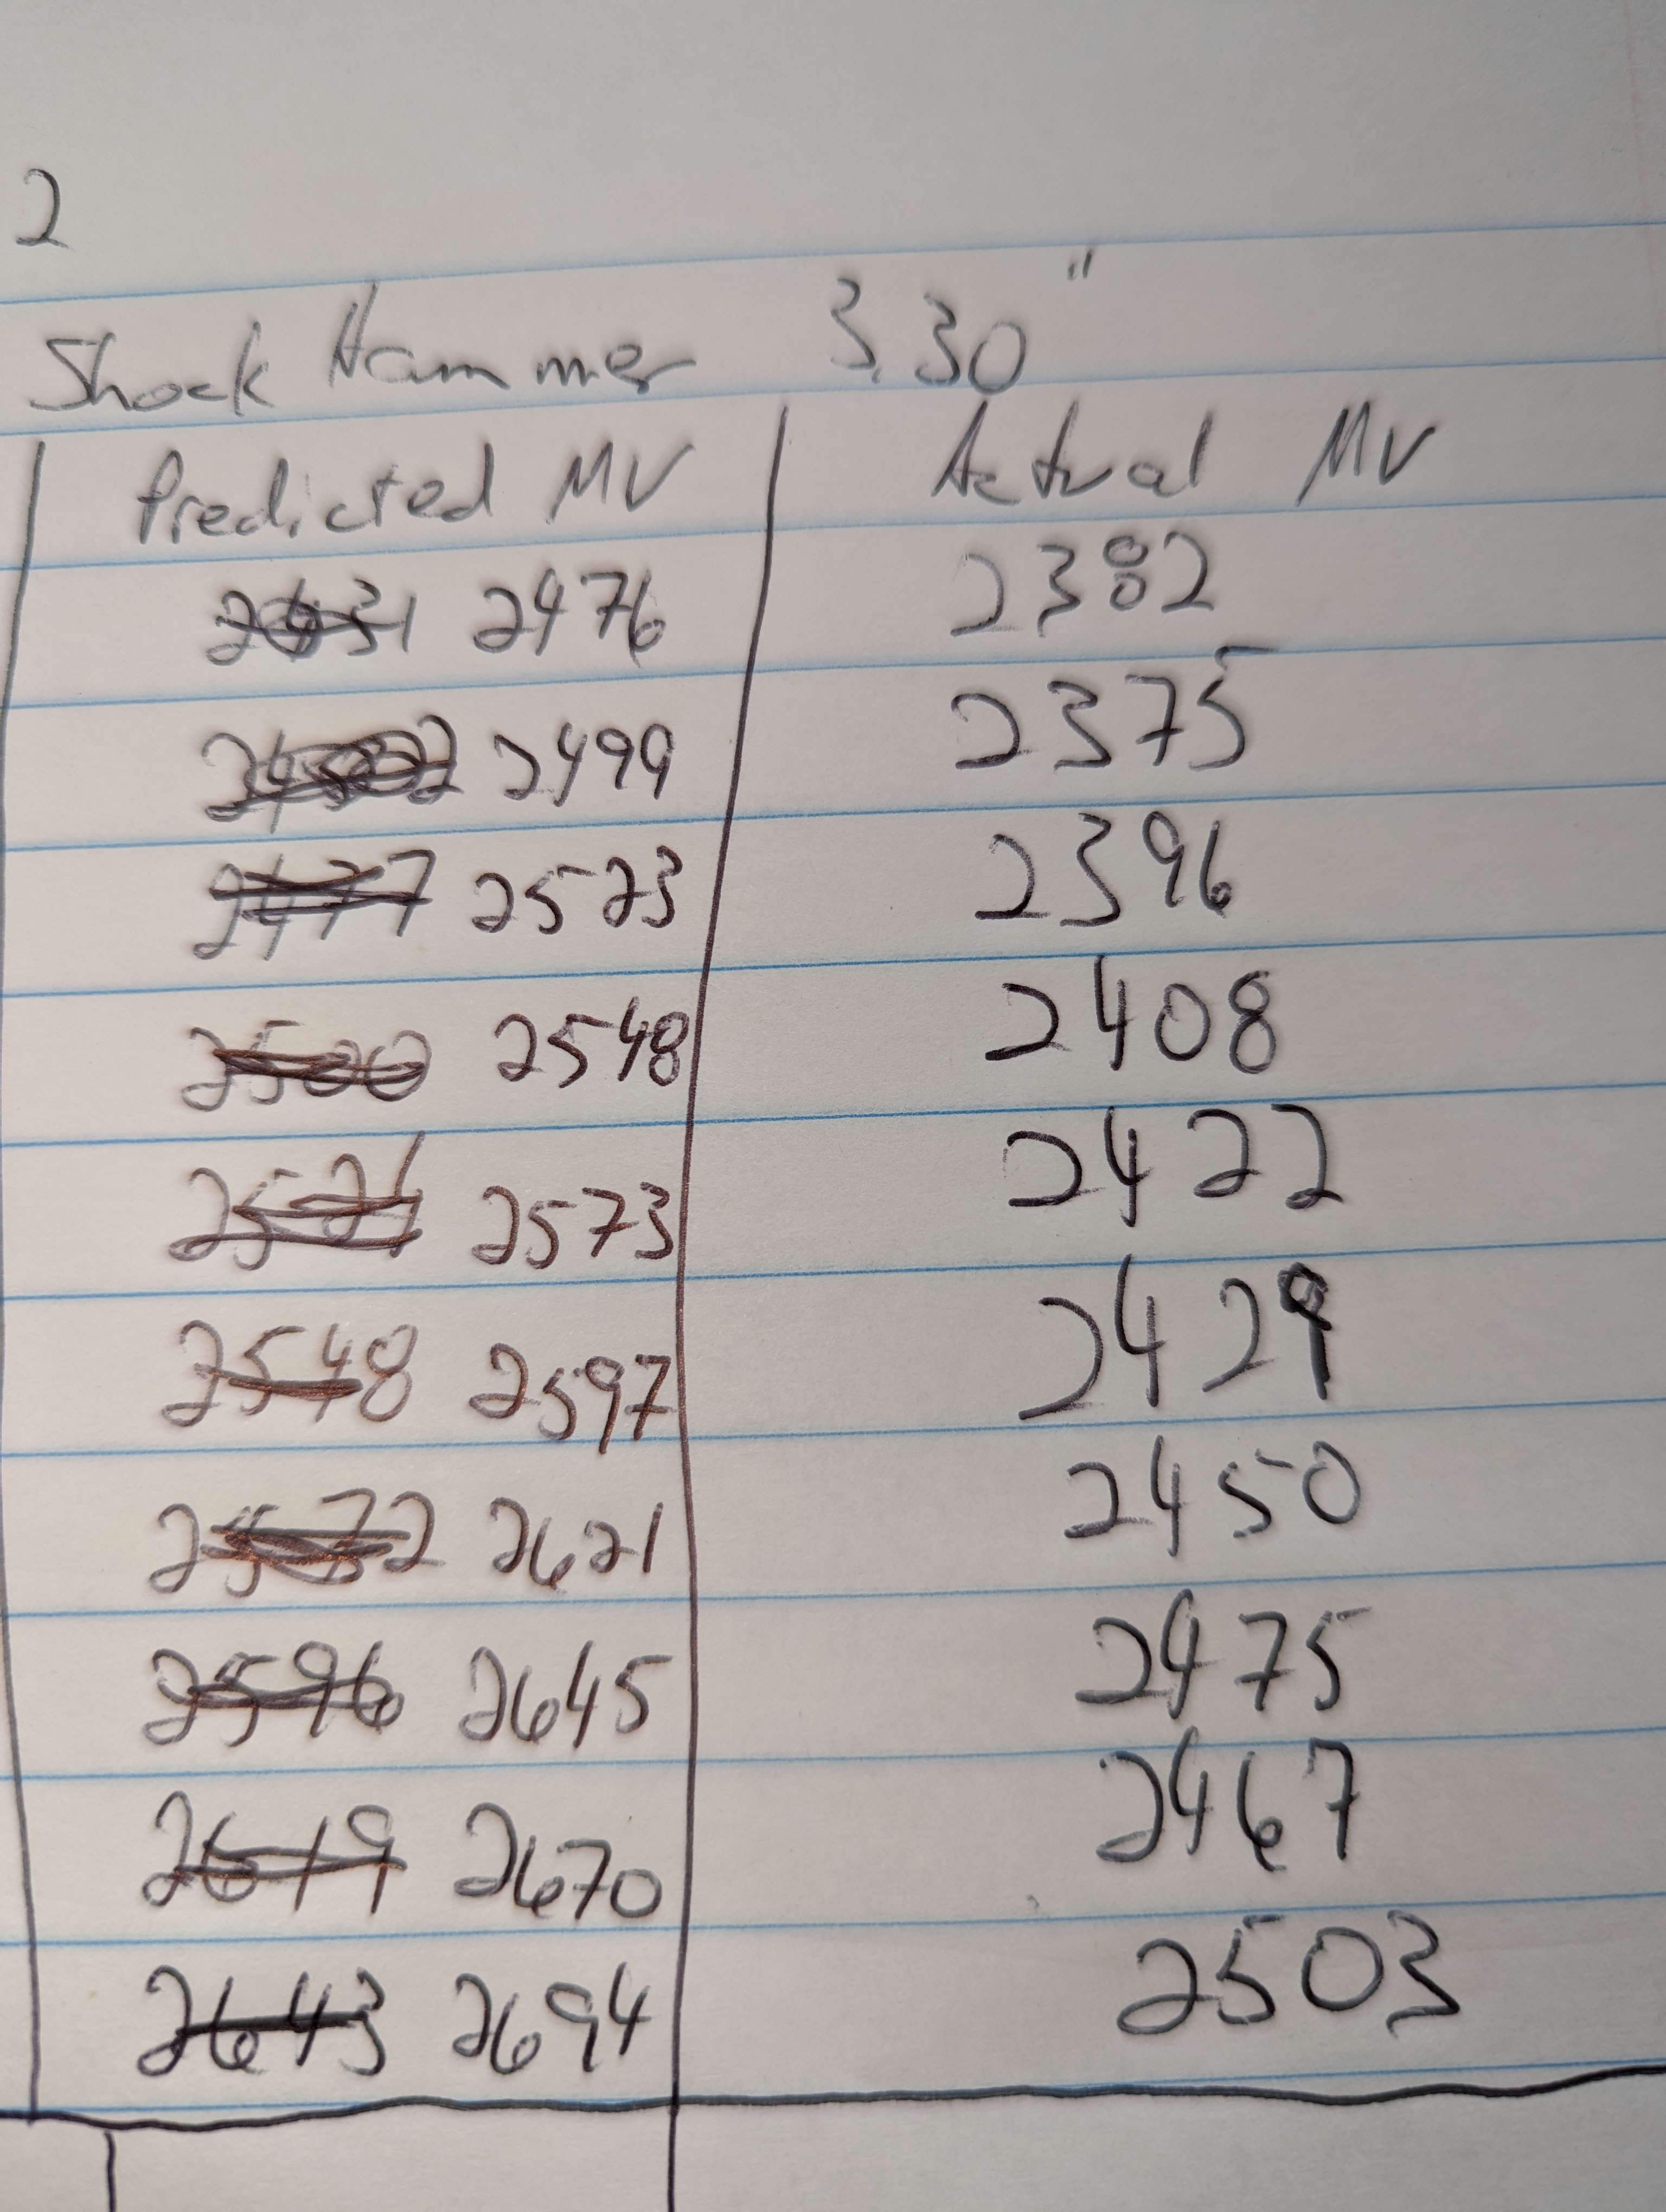 2
Shock Hammer 3.30"
Predicted MV Actual MV
2476 2382
2499 2375
2523 2396
2500 2548 2408
2521 2573 2422
2548 2597 2429
2572 2621 2450
2596 2645 2475
2619 2670 2467
2643 2694 2503